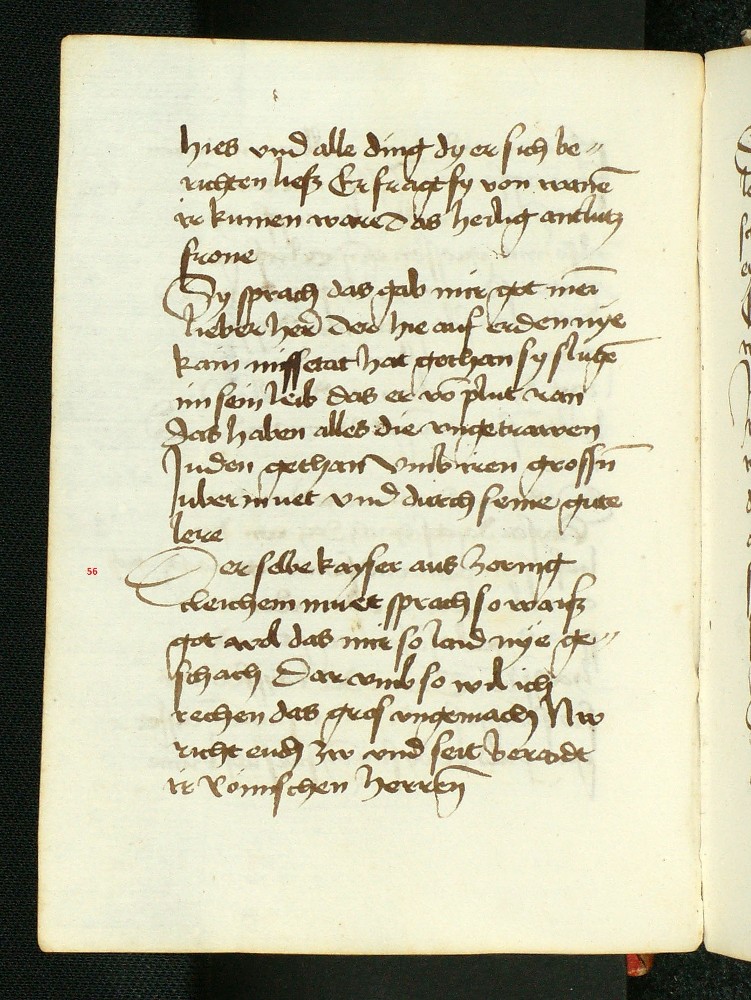 hies vnd alle ding dy er sich be〃
richten lies Er fragt sy von wanē
ir kumen ware das heilig antlutz
frone
Sy sprach das gab mir got mei
lieber herd der hie auf erden nye
kain missetat hat gethan sy slugē
im sein leib das er vō plut ran
das haben alles die vngetrawen
Juden gethan vmb irren grossn̄
vbermuet vnd durch seine gute
lere
56 Der selbe kayser aus zornig
cleichem muet sprach so waisz
got wol das mir so laid nye ge〃
schach Dar vmb so wil ich
rechen das gros vngemach Nw
richt euch zw vnd seit beraidt
ir Römischen herren̄